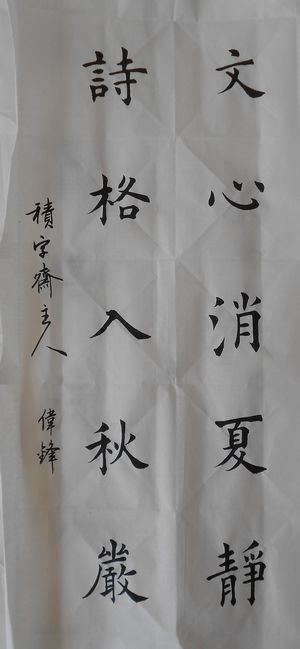 文心消夏靜
詩格入秋嚴
積字齋主人 偉鋒